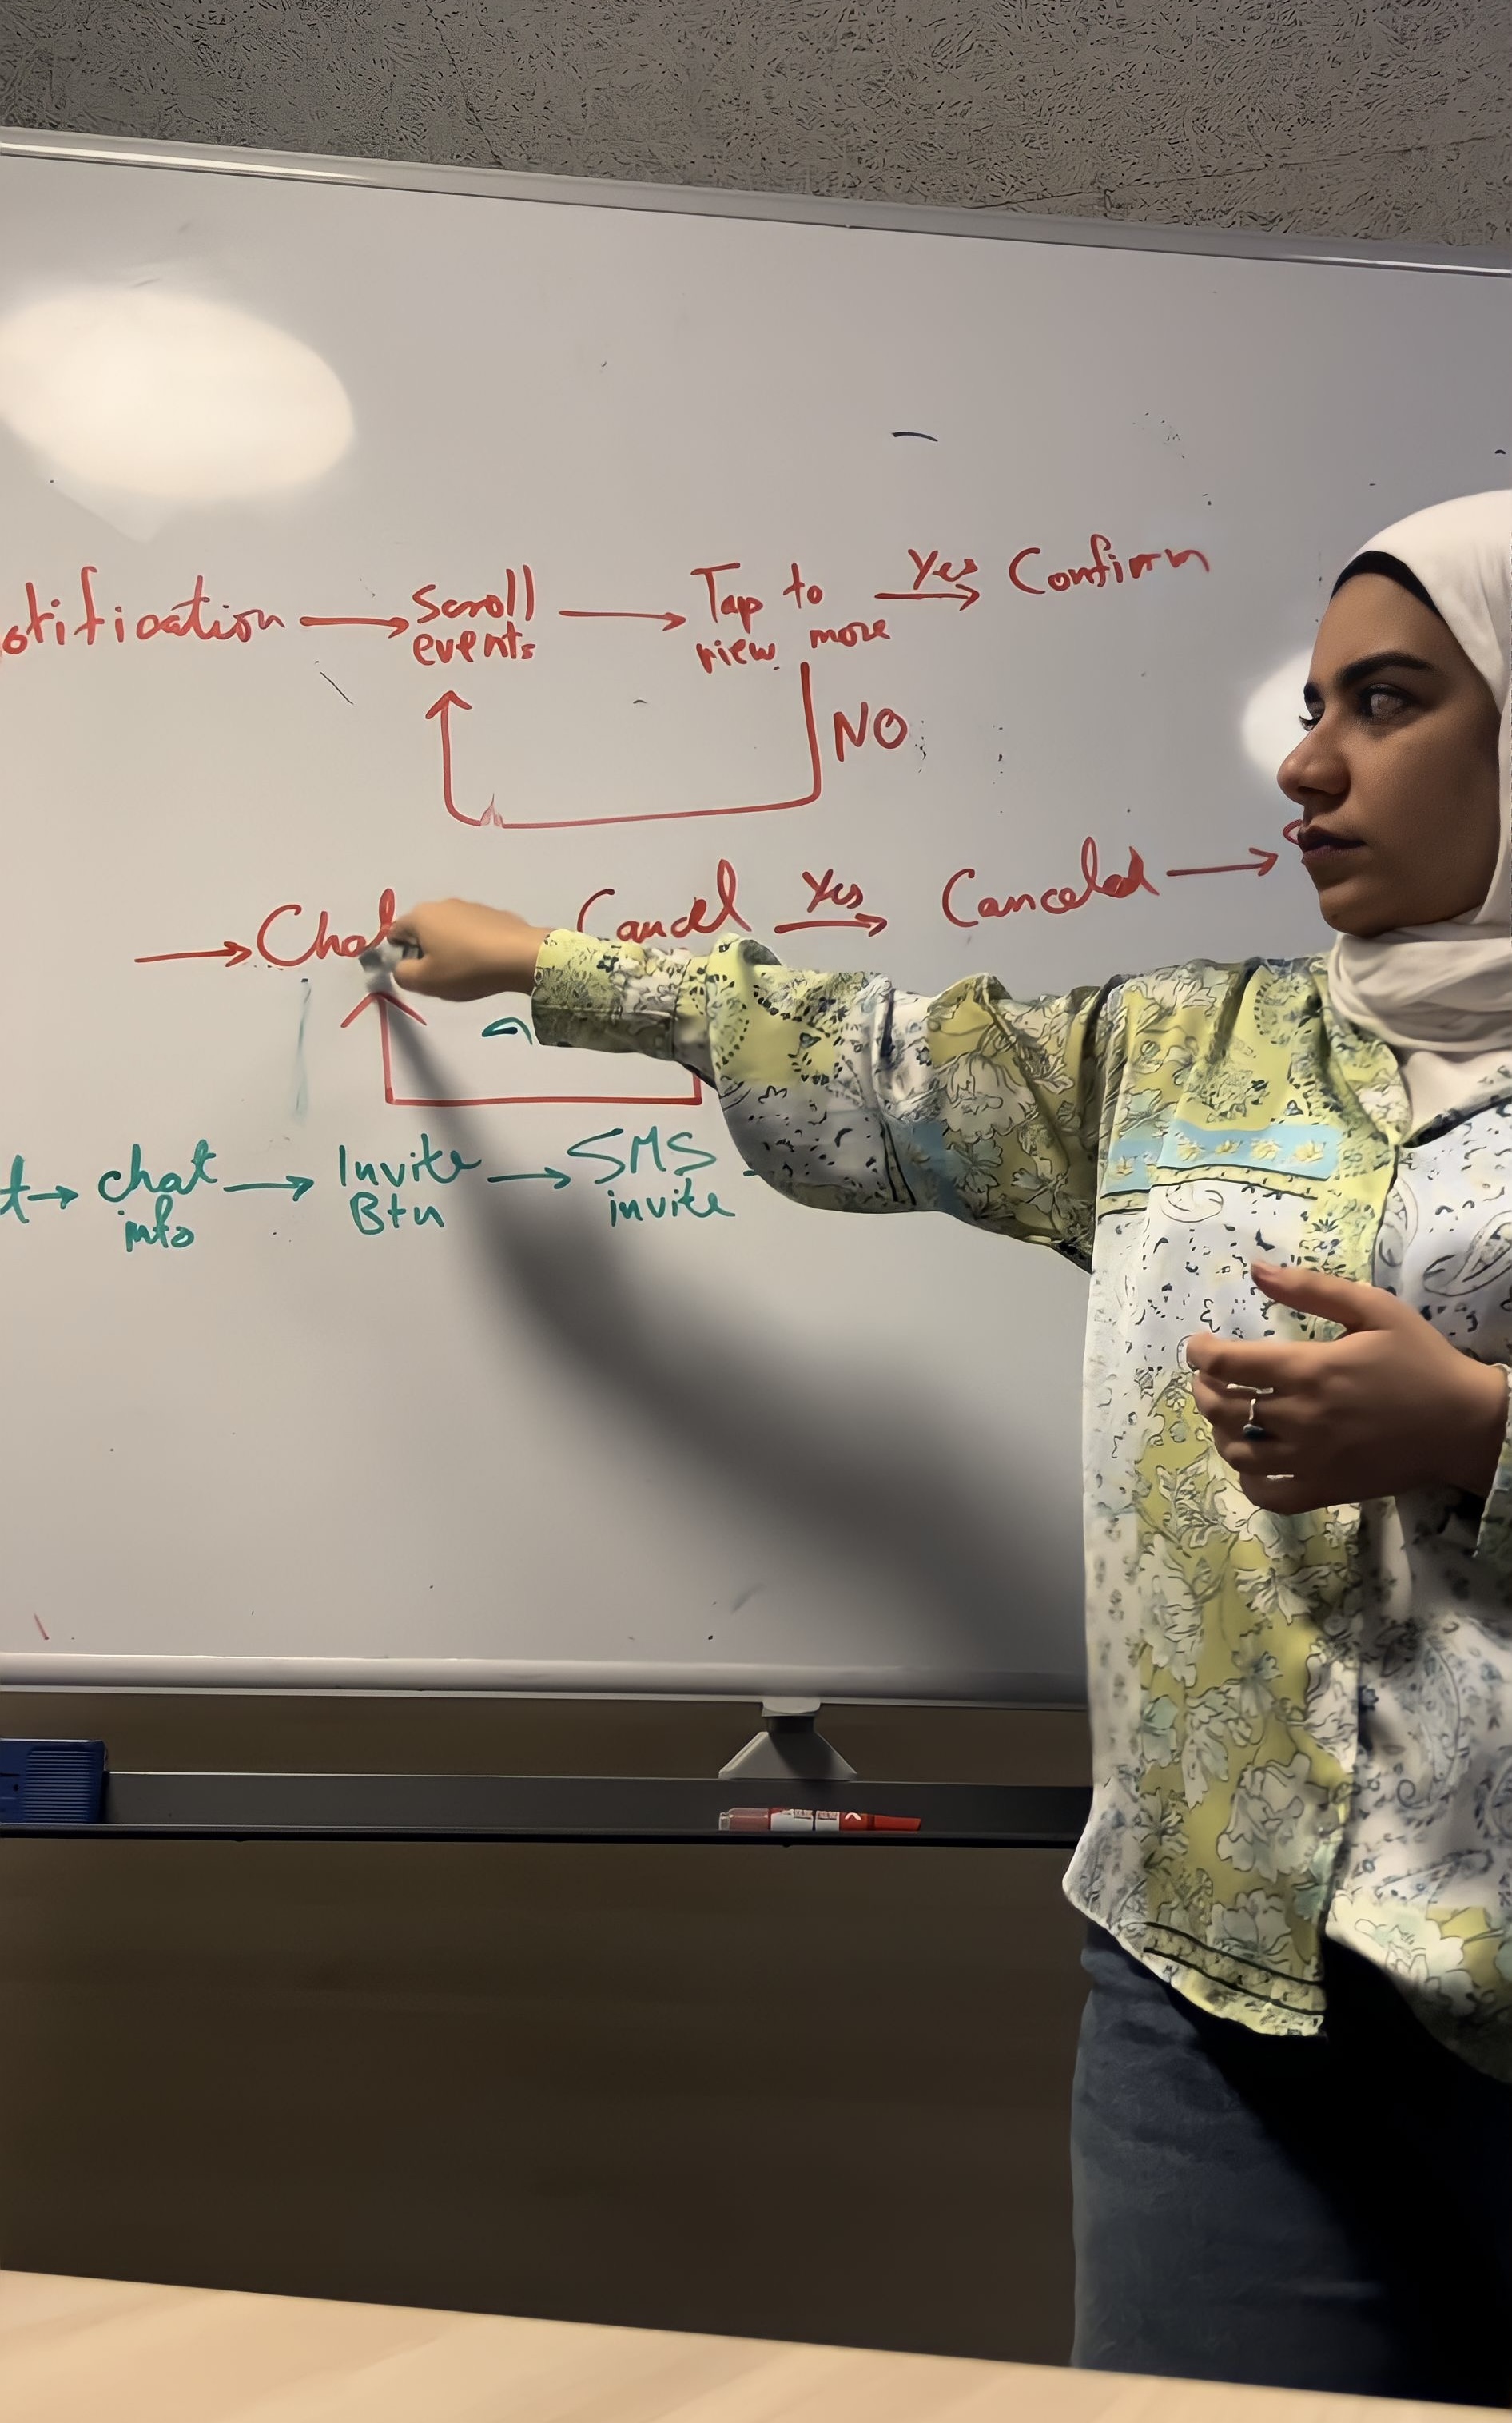 otification → Scroll events → Tap to view more → Yes Confirm
NO
→ Chat Cancel Yes → Canceled →
t → chat info → Invite Btn → SMS invite